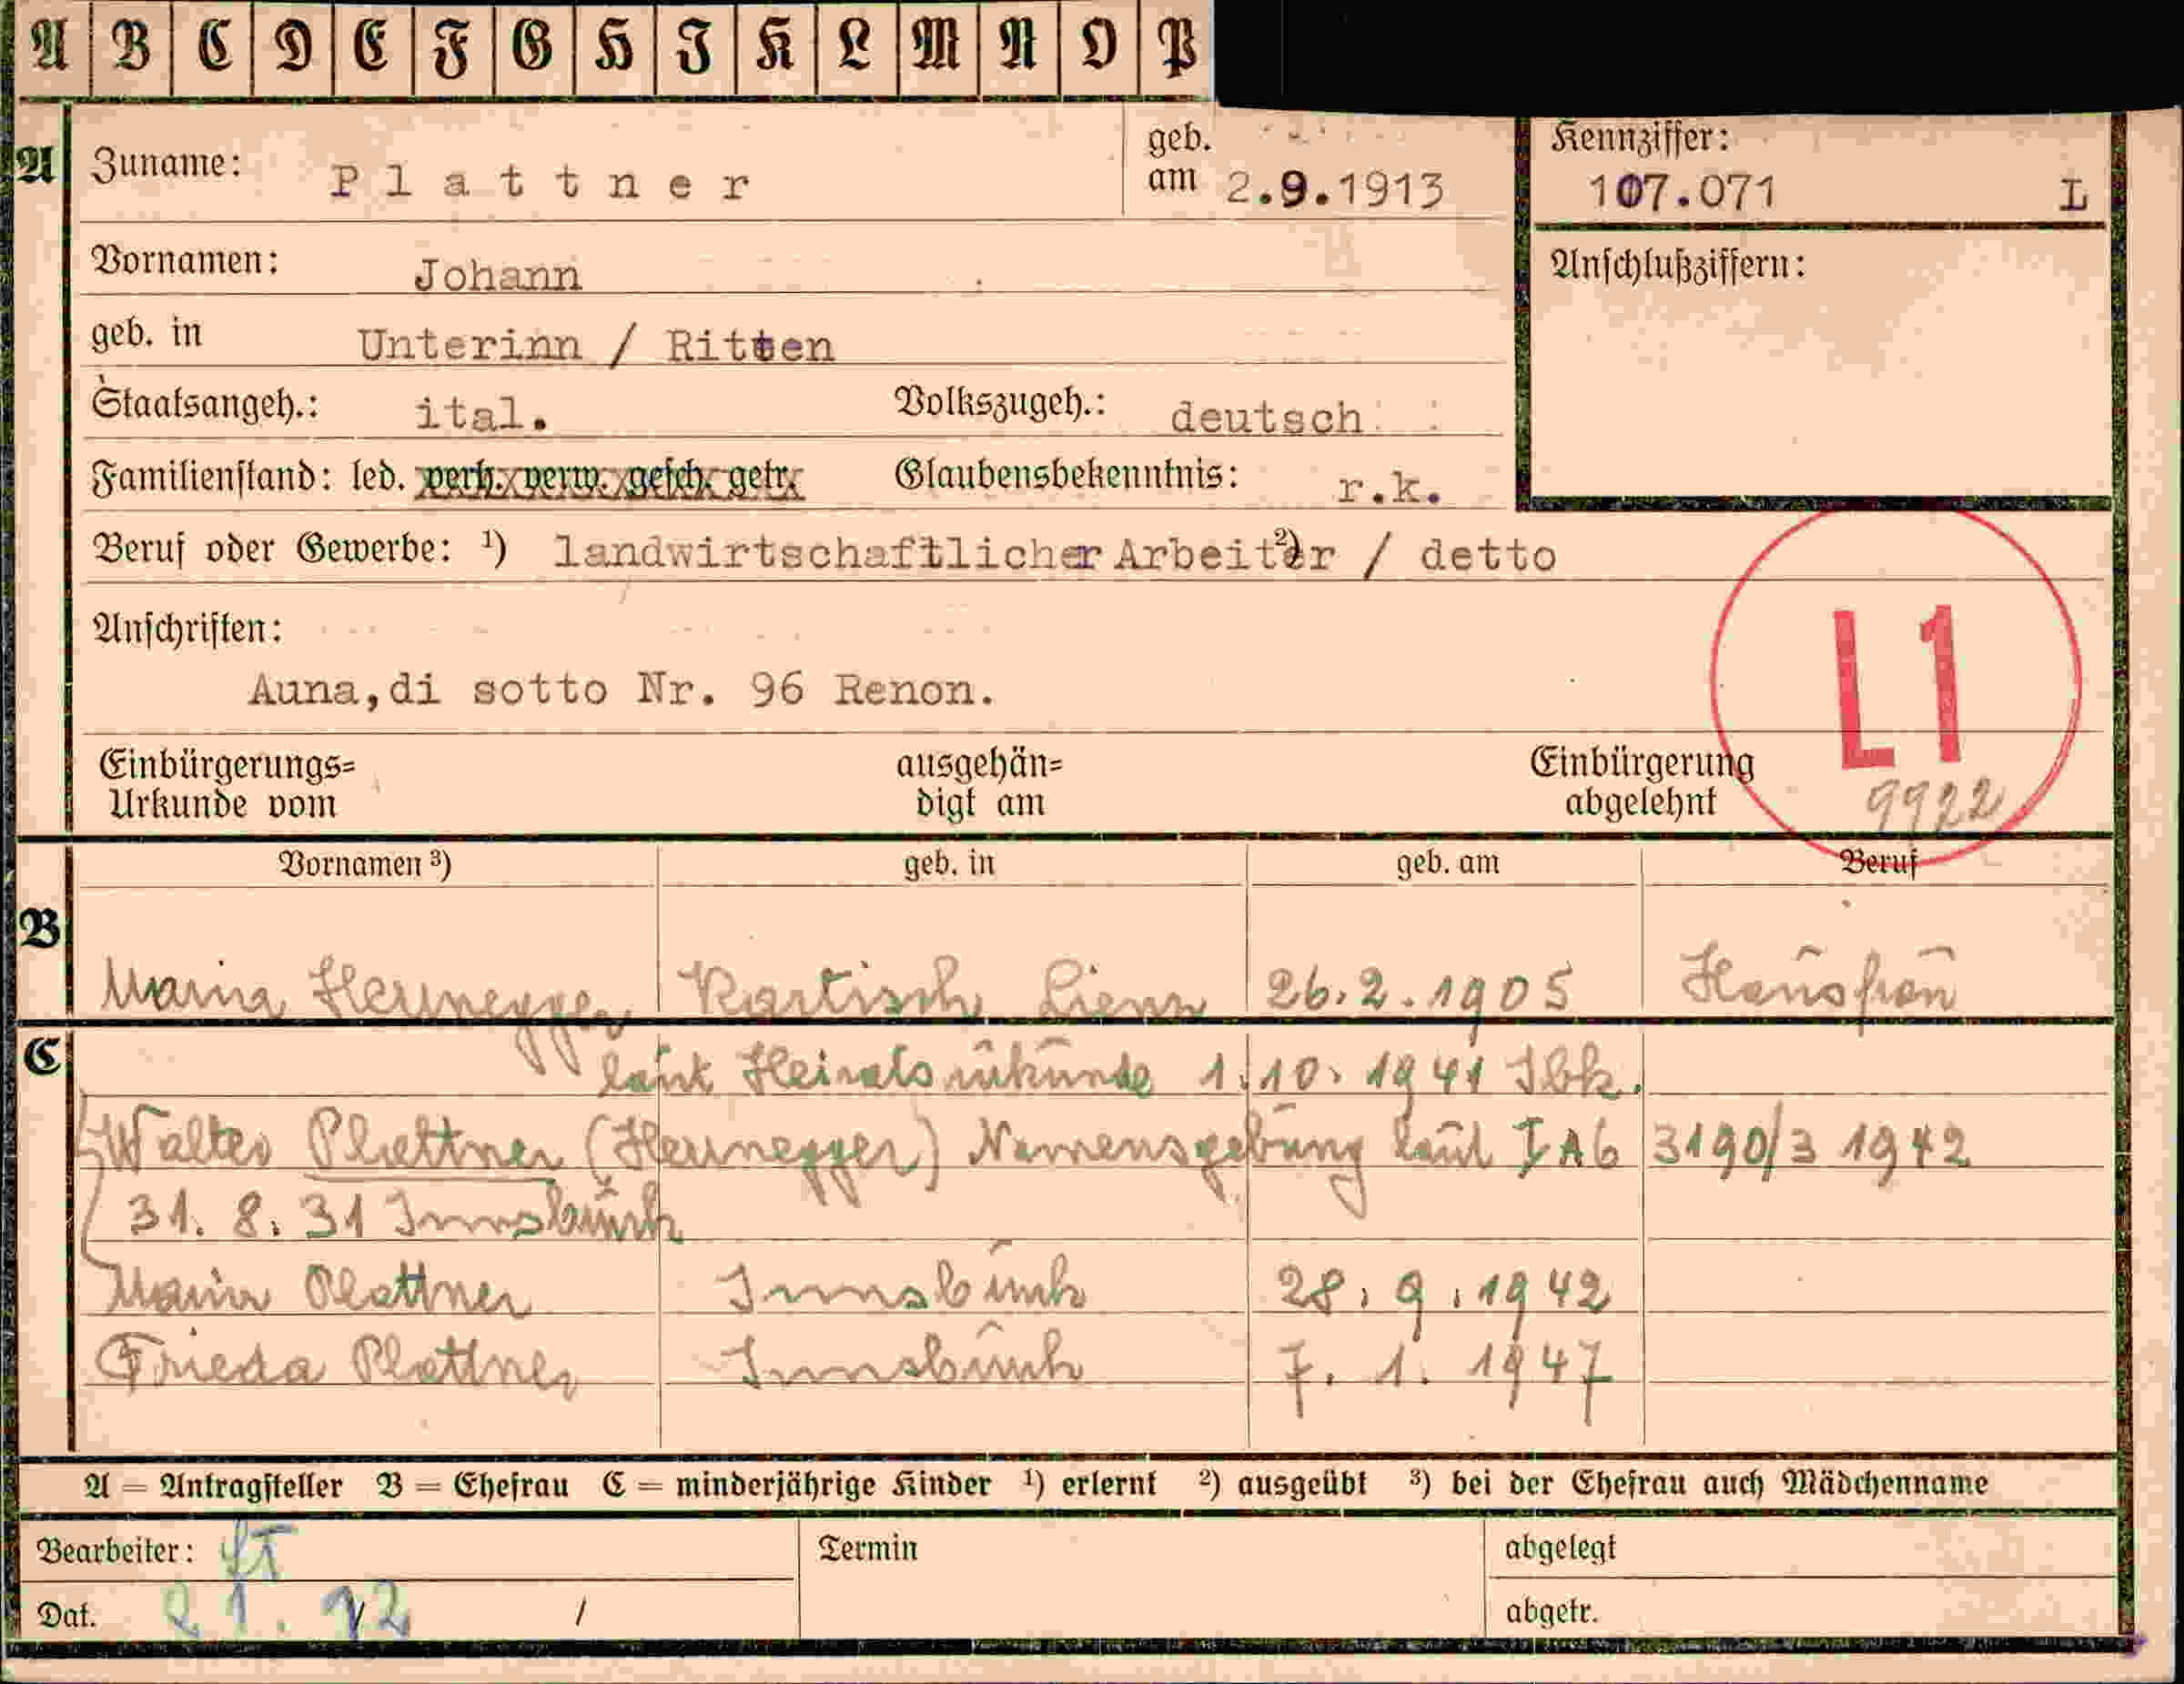 A B C D E F G H I K L M N O P
A
Zuname: Plattner
geb. am 2.9.1913
Kennziffer:
107.071 L
Vornamen: Johann
Anschlußziffern:
geb. in Unterinn / Ritten
Staatsangeh.: ital. Volkszugeh.: deutsch
Familienstand: led. verh. verw. gesch. getr. Glaubensbekenntnis: r.k.
Beruf oder Gewerbe: ¹) landwirtschaftlicher Arbeiter ²) / detto
Anschriften:
Auna,di sotto Nr. 96 Renon.
L1
9922
Einbürgerungs=
Urkunde vom
ausgehän=
digt am
Einbürgerung
abgelehnt
Vornamen ³) geb. in geb. am Beruf
B
Maria Herrnegger Kartisch Lienz 26.2.1905 Hausfrau
C
laut Heiratsurkunde 1.10.1941 Ibk.
Walter Plattner (Herrnegger) Namensgebung laut I A6 3190/3 1942
31. 8. 31 Innsbruck
Maria Plattner Innsbruck 28.9.1942
Frieda Plattner Innsbruck 7. 1. 1947
A = Antragsteller B = Ehefrau C = minderjährige Kinder ¹) erlernt ²) ausgeübt ³) bei der Ehefrau auch Mädchenname
Bearbeiter:
Termin
abgelegt
Dat. /
abgetr.